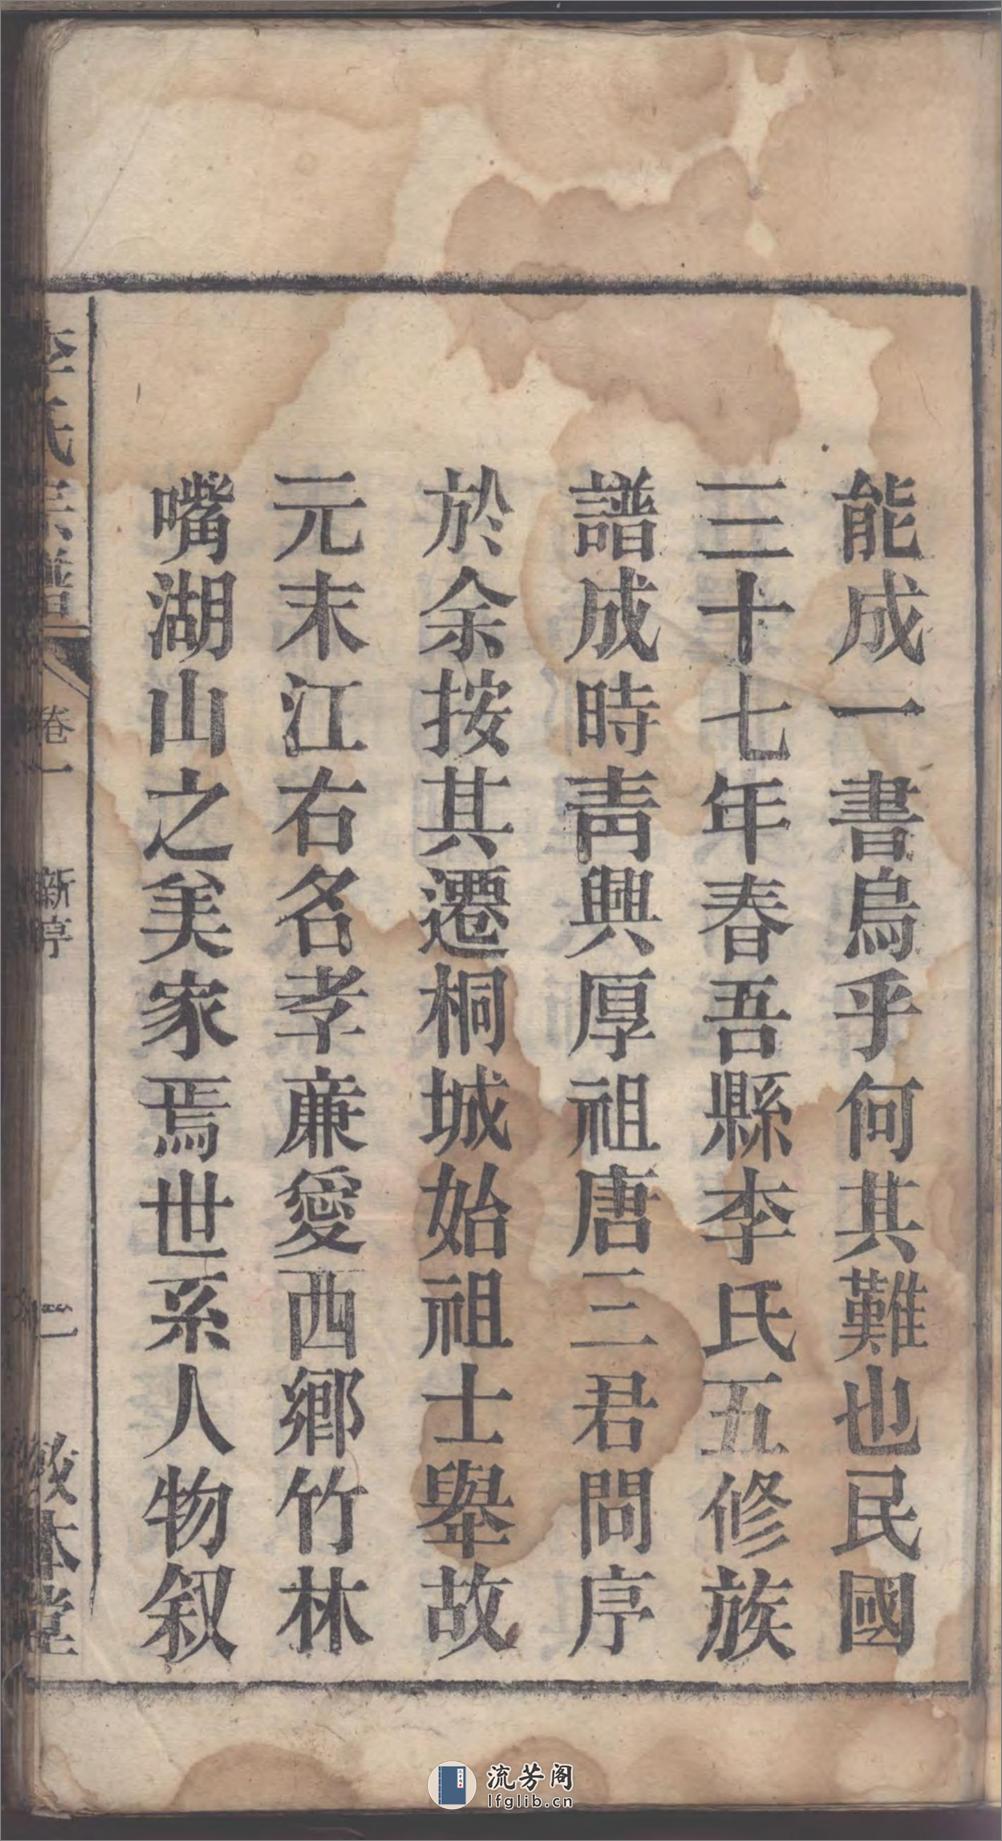 能成一書烏乎何其難也民國
三十七年春吾縣李氏五修族
譜成時靑興厚祖唐三君問序
於余按其遷桐城始祖士舉故
元末江右名孝廉愛西鄉竹林
嘴湖山之美家焉世系人物叙
李氏宗譜
卷一
新序
二
本堂
流芳阁
lfglib.cn